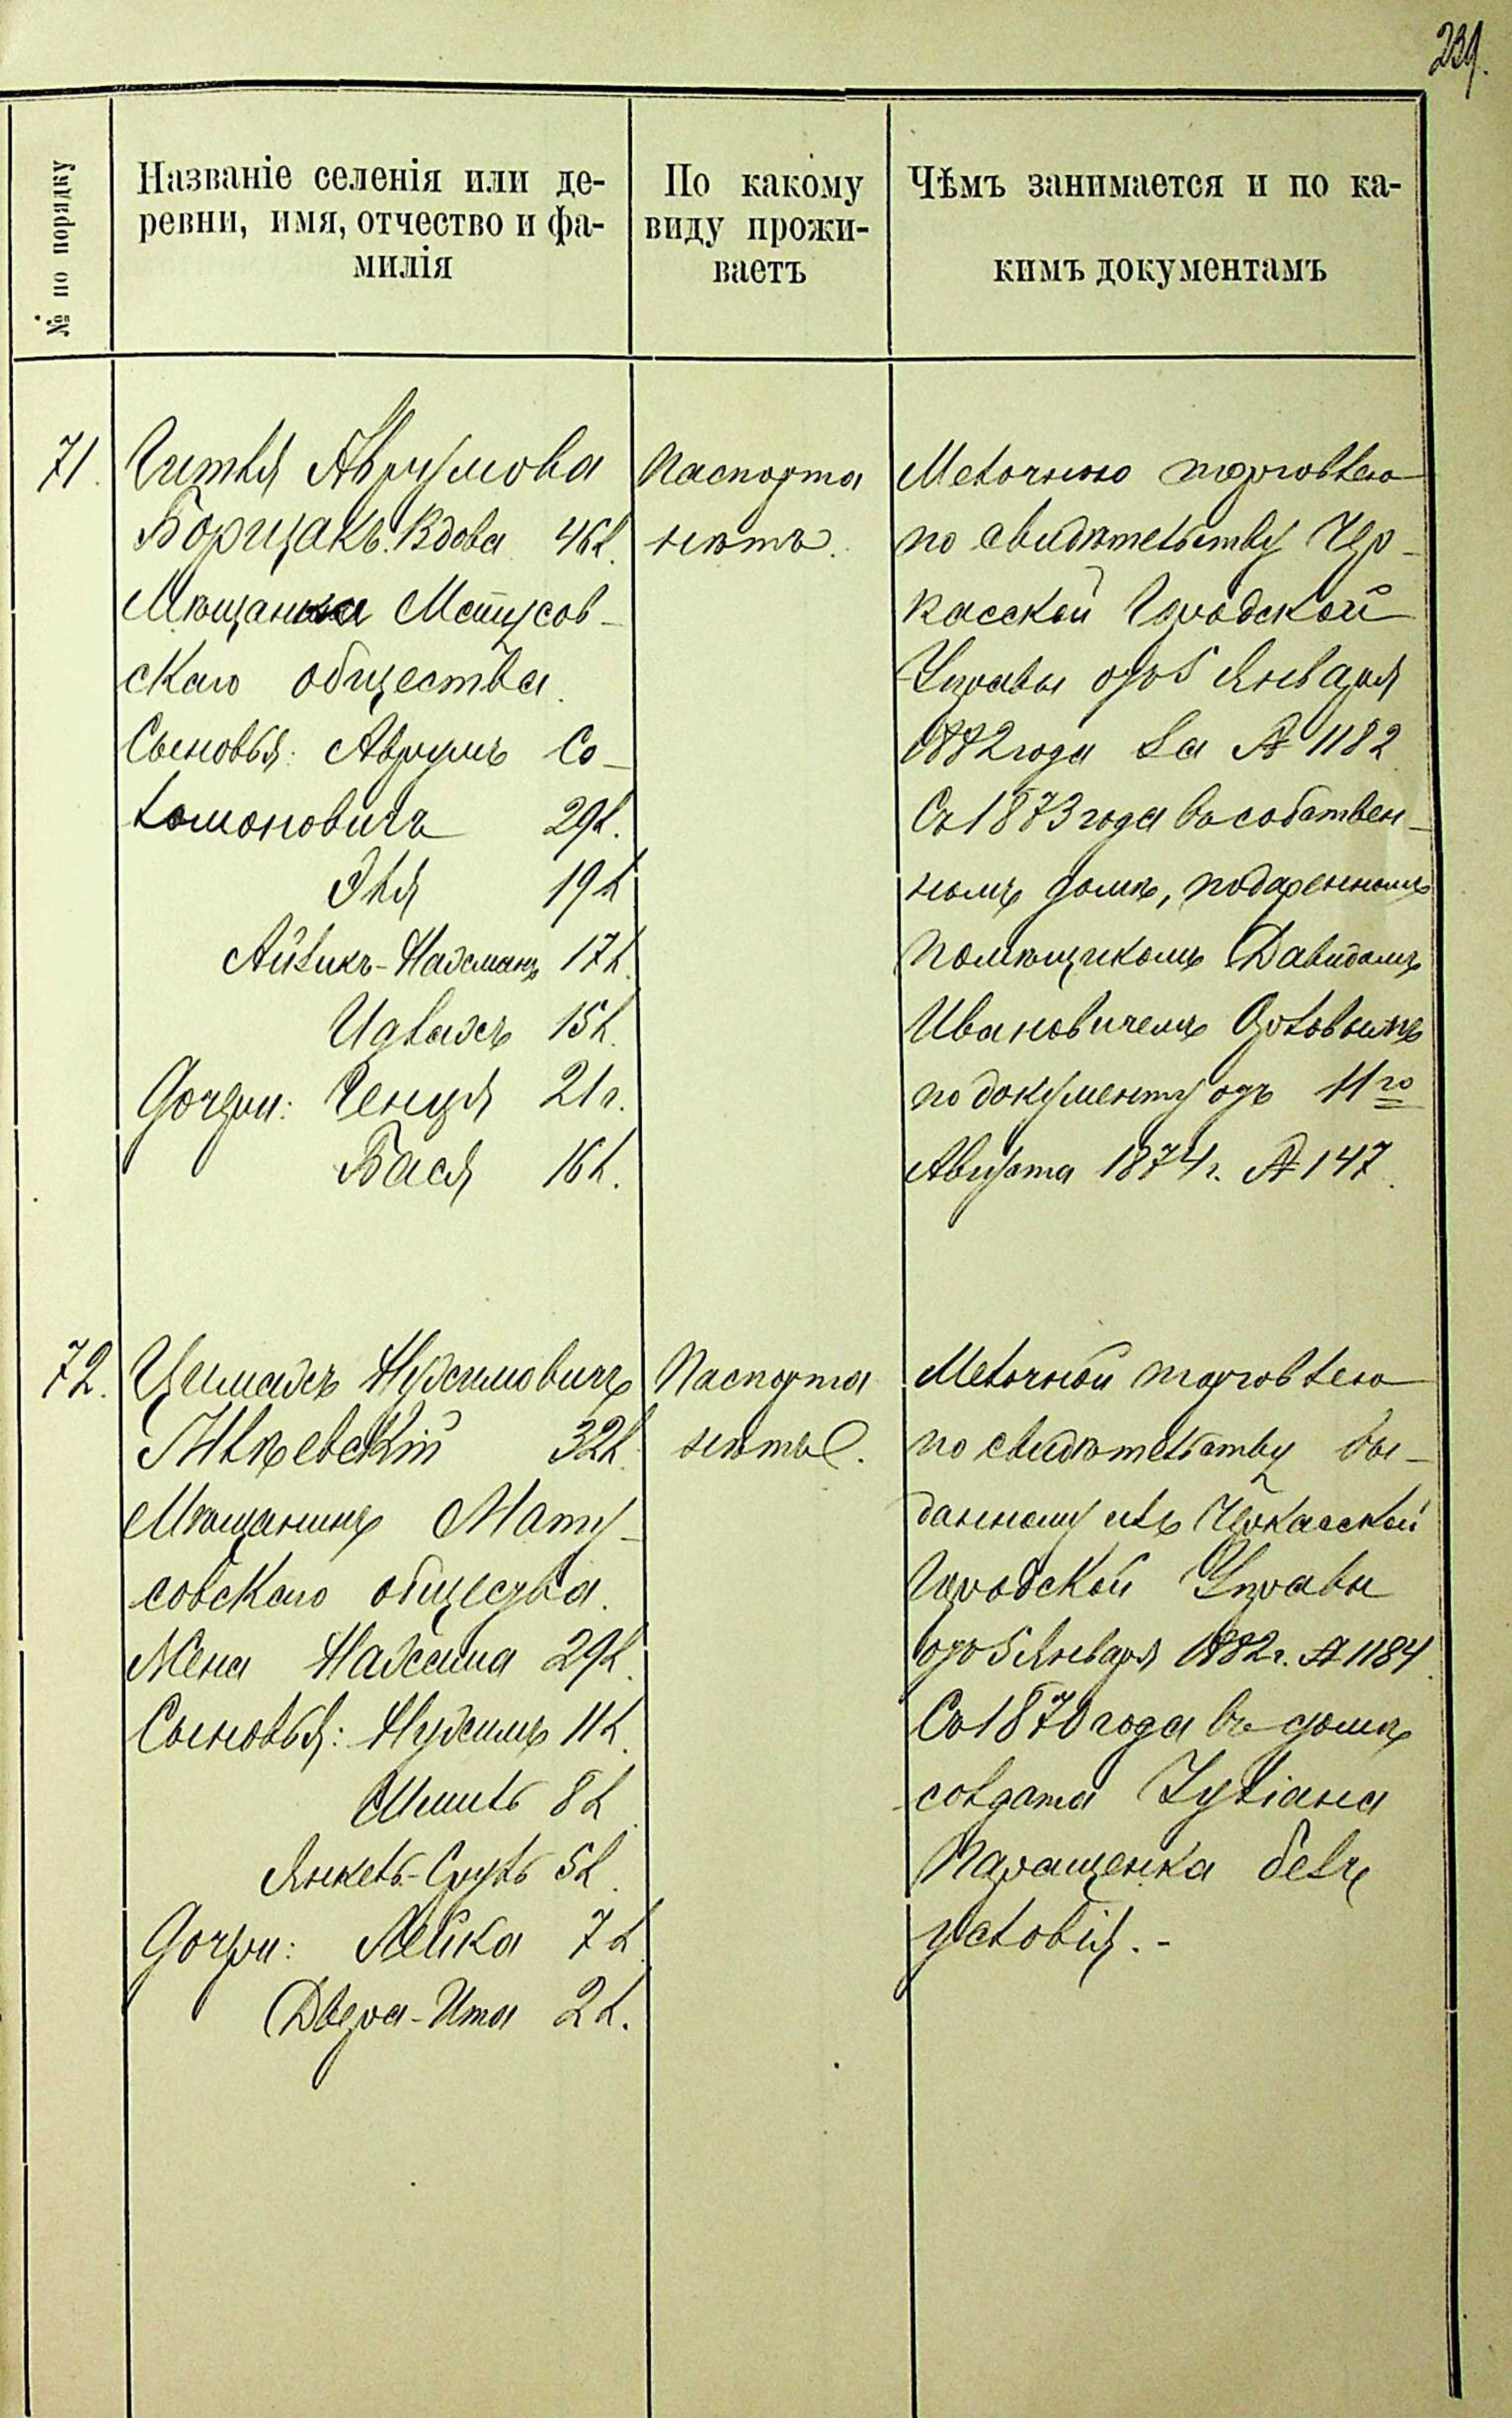 239.
№ по порядку
Названіе селенія или де-
ревни, имя, отчество и фа-
милія
По какому
виду прожи-
ваетъ
Чѣмъ занимается и по ка-
кимъ документамъ
71.
Гитля Аврумова
Борщакъ. Вдова 46 л.
Мѣщанка Матусов-
скаго общества.
Сыновья: Аврумъ Со-
ломоновичъ 29 л.
Эля 19 л.
Айзикъ-Нахманъ 17 л.
Ицхакъ 15 л.
Дочери: Генця 21 г.
Бася 16 л.
Паспорта
нѣтъ.
Мелочною торговлею
по свидѣтельству Чер-
касской Городской
Управы отъ 5 Января
1882 года за № 1182
Съ 1873 года въ собствен-
номъ домѣ, подаренномъ
помѣщикомъ Давидомъ
Ивановичемъ Орловымъ
по документу отъ 11го
Августа 1874 г. № 147.
72.
Цемахъ Нухимовичъ
32 л.
Мѣщанинъ Мату-
совскаго общества.
Жена Нахама 29 л.
Сыновья: Нухимъ 11 л.
Шмиль 8 л.
Янкель-Сруль 5 л.
Дочери: Лейка 7 л.
Двера-Ита 2 л.
Паспорта
нѣтъ.
Мелочной торговлею
по свидѣтельству вы-
данному изъ Черкасской
Городской Управы
отъ 5 Января 1882 г. № 1184.
Съ 1870 года въ домѣ
солдата Лукіана
Паращенка безъ
условія.-